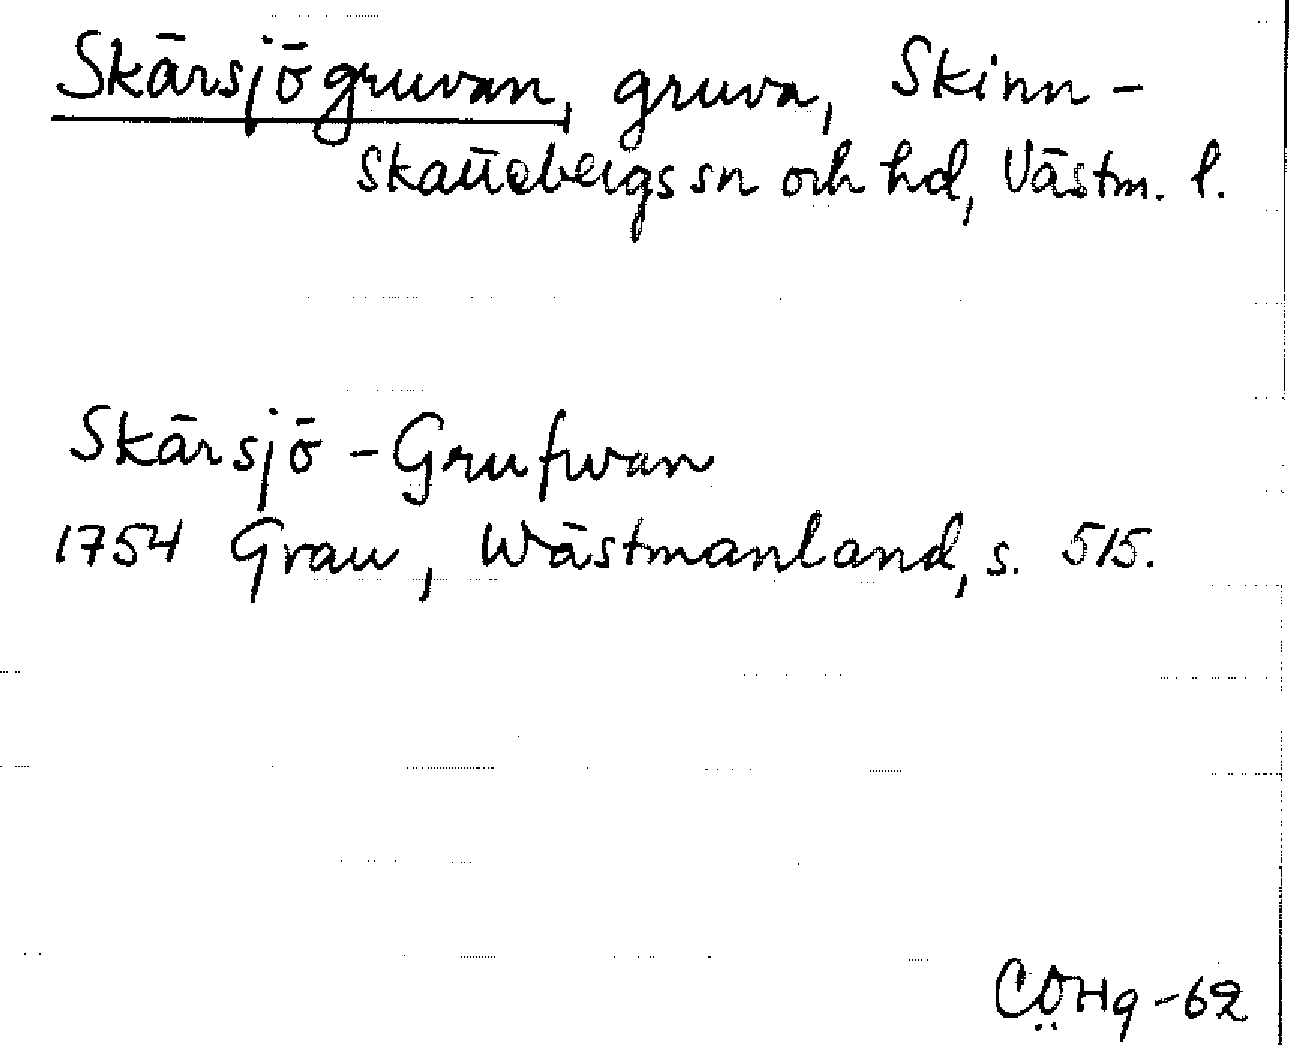 Skärsjögruvan, gruva, Skinn-
Skattebergs sn och hd, Västm. l.
Skärsjö-Grufwan
1754 Grau, Wästmanland, s. 515.
CÖHg-62